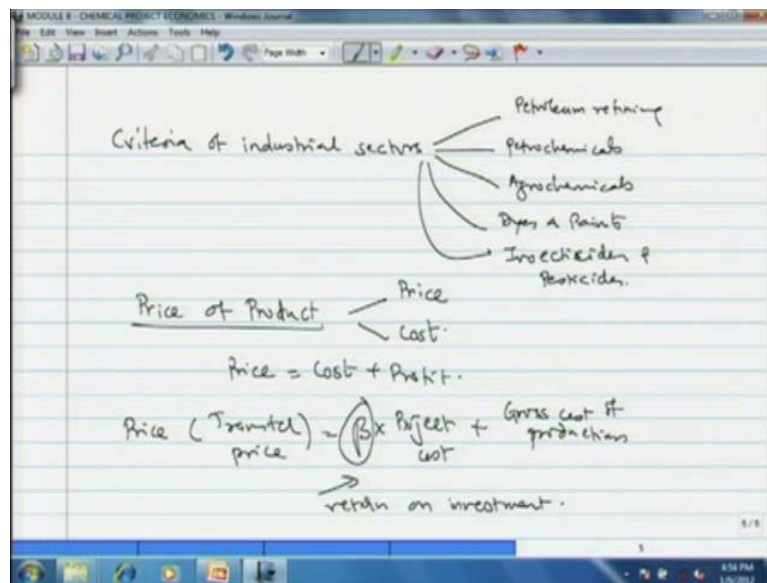 MODULE 8 - CHEMICAL PROJECT ECONOMICS - Windows Journal
File Edit View Insert Actions Tools Help
Page Width
Petroleum refining
Criteria of industrial sectors
Petrochemicals
Agrochemicals
Dyes & Paints
Insecticides &
Pesticides.
Price of Product
Price
Cost.
Price = Cost + Profit.
Price (Transfer price) = β x Project cost + Gross cost of production
return on investment.
5/5
5
4:54 PM
1/6/2012